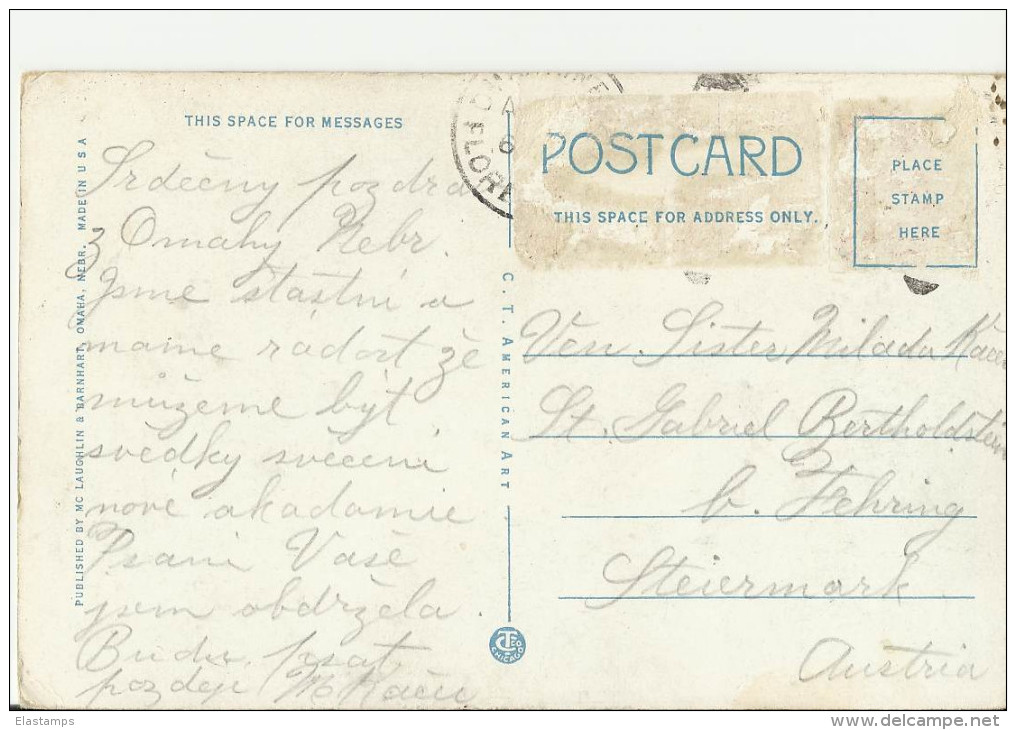 THIS SPACE FOR MESSAGES
Srdečny pozdra
z Omahy Nebr.
Jsme štastni a
máme radost že
můžeme být
svědky svěcení
nové akademie
Psani Vaše
jsem obdržela.
Budu psat
pozdeji M
PUBLISHED BY MC LAUGHLIN & BARNHART, OMAHA, NEBR. MADE IN U S A
C. T. AMERICAN ART
CHICAGO
FLORE
POST CARD
THIS SPACE FOR ADDRESS ONLY.
PLACE
STAMP
HERE
Ven Sister Milada
St. Gabriel Bertholdstein
b. Fehring
Steiermark
Austria
Elastamps
www.delcampe.net